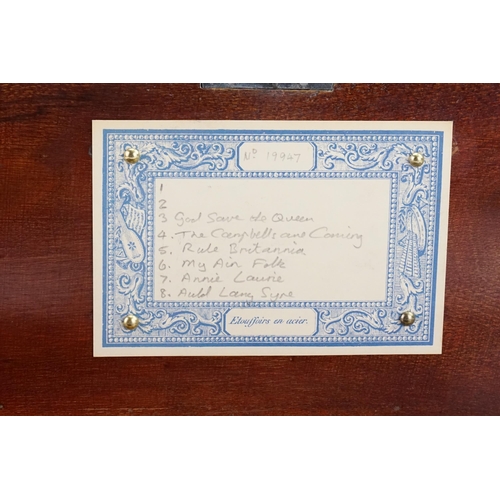 No 19927
1
2
3 God Save the Queen
4. The Campbells are Coming
5. Rule Britannia
6. My Ain Folk
7. Annie Laurie
8. Auld Lang Syne
Etouffoirs en acier.